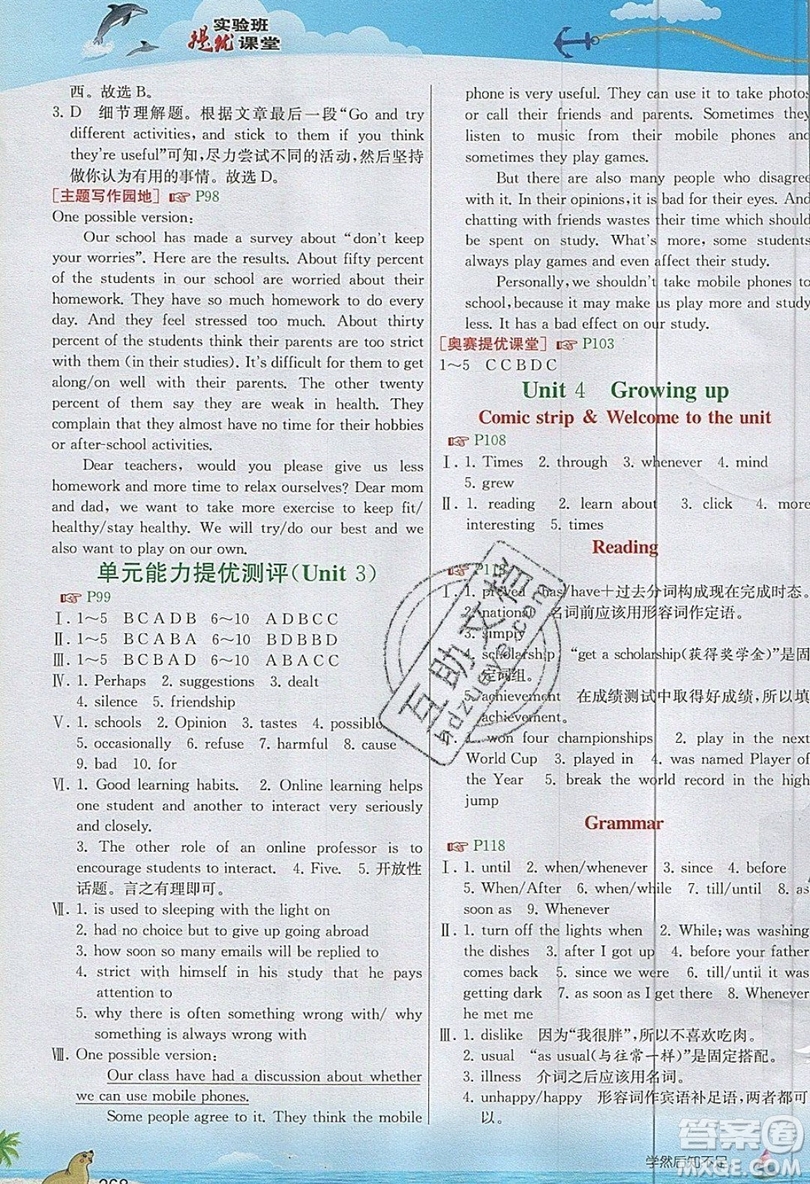 实验班
提优课堂
西。故选B。
3. D 细节理解题。根据文章最后一段“Go and try
different activities, and stick to them if you think
they're useful”可知,尽力尝试不同的活动,然后坚持
做你认为有用的事情。故选D。
[主题写作园地] P98
One possible version:
Our school has made a survey about “don't keep
your worries”. Here are the results. About fifty percent
of the students in our school are worried about their
homework. They have so much homework to do every
day. And they feel stressed too much. About thirty
percent of the students think their parents are too strict
with them (in their studies). It's difficult for them to get
along/on well with their parents. The other twenty
percent of them are weak in health. They
complain that they almost have no time for their hobbies
or after-school activities.
Dear teachers, would you please give us less
homework and more time to relax ourselves? Dear mom
and dad, we want to take more exercise to keep
healthy/stay healthy. We will try/do our best and we
also want to play on our own.
单元能力提优测评(Unit 3)
P99
Ⅰ. 1~5 BCADB 6~10 ADBCC
Ⅱ. 1~5 BCABA 6~10 DBDBD
Ⅲ. 1~5 BCADB 6~10 DACBC
Ⅳ. 1. Perhaps 2. suggestions 3. dealt
4. silence 5. friendship
Ⅴ. 1. schools 2. Opinion 3. tastes 4. possible
5. occasionally 6. refuse 7. harmful 8. cause
9. bad 10. for
Ⅵ. 1. Good learning habits. 2. Online learning helps
one student and another to interact very seriously
and closely.
3. The other role of an online professor is to
encourage students to interact. 4. Five. 5. 开放性
话题。言之有理即可。
Ⅶ. 1. is used to sleeping with the light on
2. had no choice but to give up going abroad
3. how soon so many emails will be replied to
4. strict with himself in his study that he pays
attention to
5. why there is often something wrong with/ why
something is often wrong with
Ⅷ. One possible version:
Our class have had a discussion about whether
we can use mobile phones.
Some people agree to it. They think the mobile
phone is very useful. They can use it to take photos
or call their friends and parents. Sometimes they
listen to music from their mobile phones and
sometimes they play games.
But there are also many people who disagree
with it. In their opinions, it is bad for their eyes. And
chatting with friends wastes their time which should
be spent on study. What's more, some students
always play games and even affect their study.
Personally, we shouldn't take mobile phones to
school, because it makes us play more and study
less. It has a bad influence on our study.
[奥赛提优课堂] P103
1~5 CCBDC
Unit 4 Growing up
Comic strip & Welcome to the unit
P108
Ⅰ. 1. Times 2. through 3. whenever 4. mind
5. grew
Ⅱ. 1. reading 2. learn about 3. click 4. more
interesting 5. times
Reading
Ⅰ. 1. proved has/have+过去分词构成现在完成时态。
2. national 名词前应该用形容词作定语。
3. simply
4. scholarship “get a scholarship(获得奖学金)”是固
定词组。
5. achievement 在成绩测试中取得好成绩,所以填
achievement。
1. won four championships 2. play in the next
World Cup 3. in all 4. was named Player of
the Year 5. break the world record in the high
jump
Grammar
P118
Ⅰ. 1. until 2. when/whenever 3. since 4. before
5. When/After 6. while 7. whenever 8. as
soon as 9. Whenever
Ⅱ. 1. turn off the lights when 2. While; was washing
the dishes 3. after I got up 4. before your father
comes back 5. since we were 6. until/till it was
getting dark 7. as soon as I get 8. Whenever
he met me
Ⅲ. 1. dislike 因为“我很胖”,所以不喜欢吃肉。
2. usual “as usual(与往常一样)”是固定搭配。
3. illness 介词之后应该用名词。
4. unhappy/happy 形容词作宾语补足语,两者都可
以。
学然后知不足
268
互助文档
hdzuoye.com
答案圈
MXQE.COM